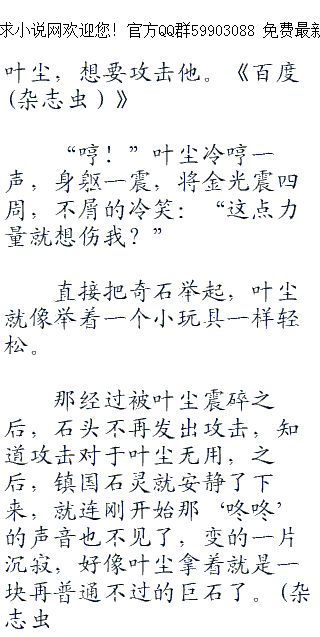 求小说网欢迎您！官方QQ群59903088 免费最新
叶尘，想要攻击他。《百度
(杂志虫)》
“哼！”叶尘冷哼一
声，身躯一震，将金光震四
周，不屑的冷笑：“这点力
量就想伤我？”
直接把奇石举起，叶尘
就像举着一个小玩具一样轻
松。
那经过被叶尘震碎之
后，石头不再发出攻击，知
道攻击对于叶尘无用，之
后，镇国石灵就安静了下
来，就连刚开始那‘咚咚’
的声音也不见了，变的一片
沉寂，好像叶尘拿着就是一
块再普通不过的巨石了。(杂
志虫